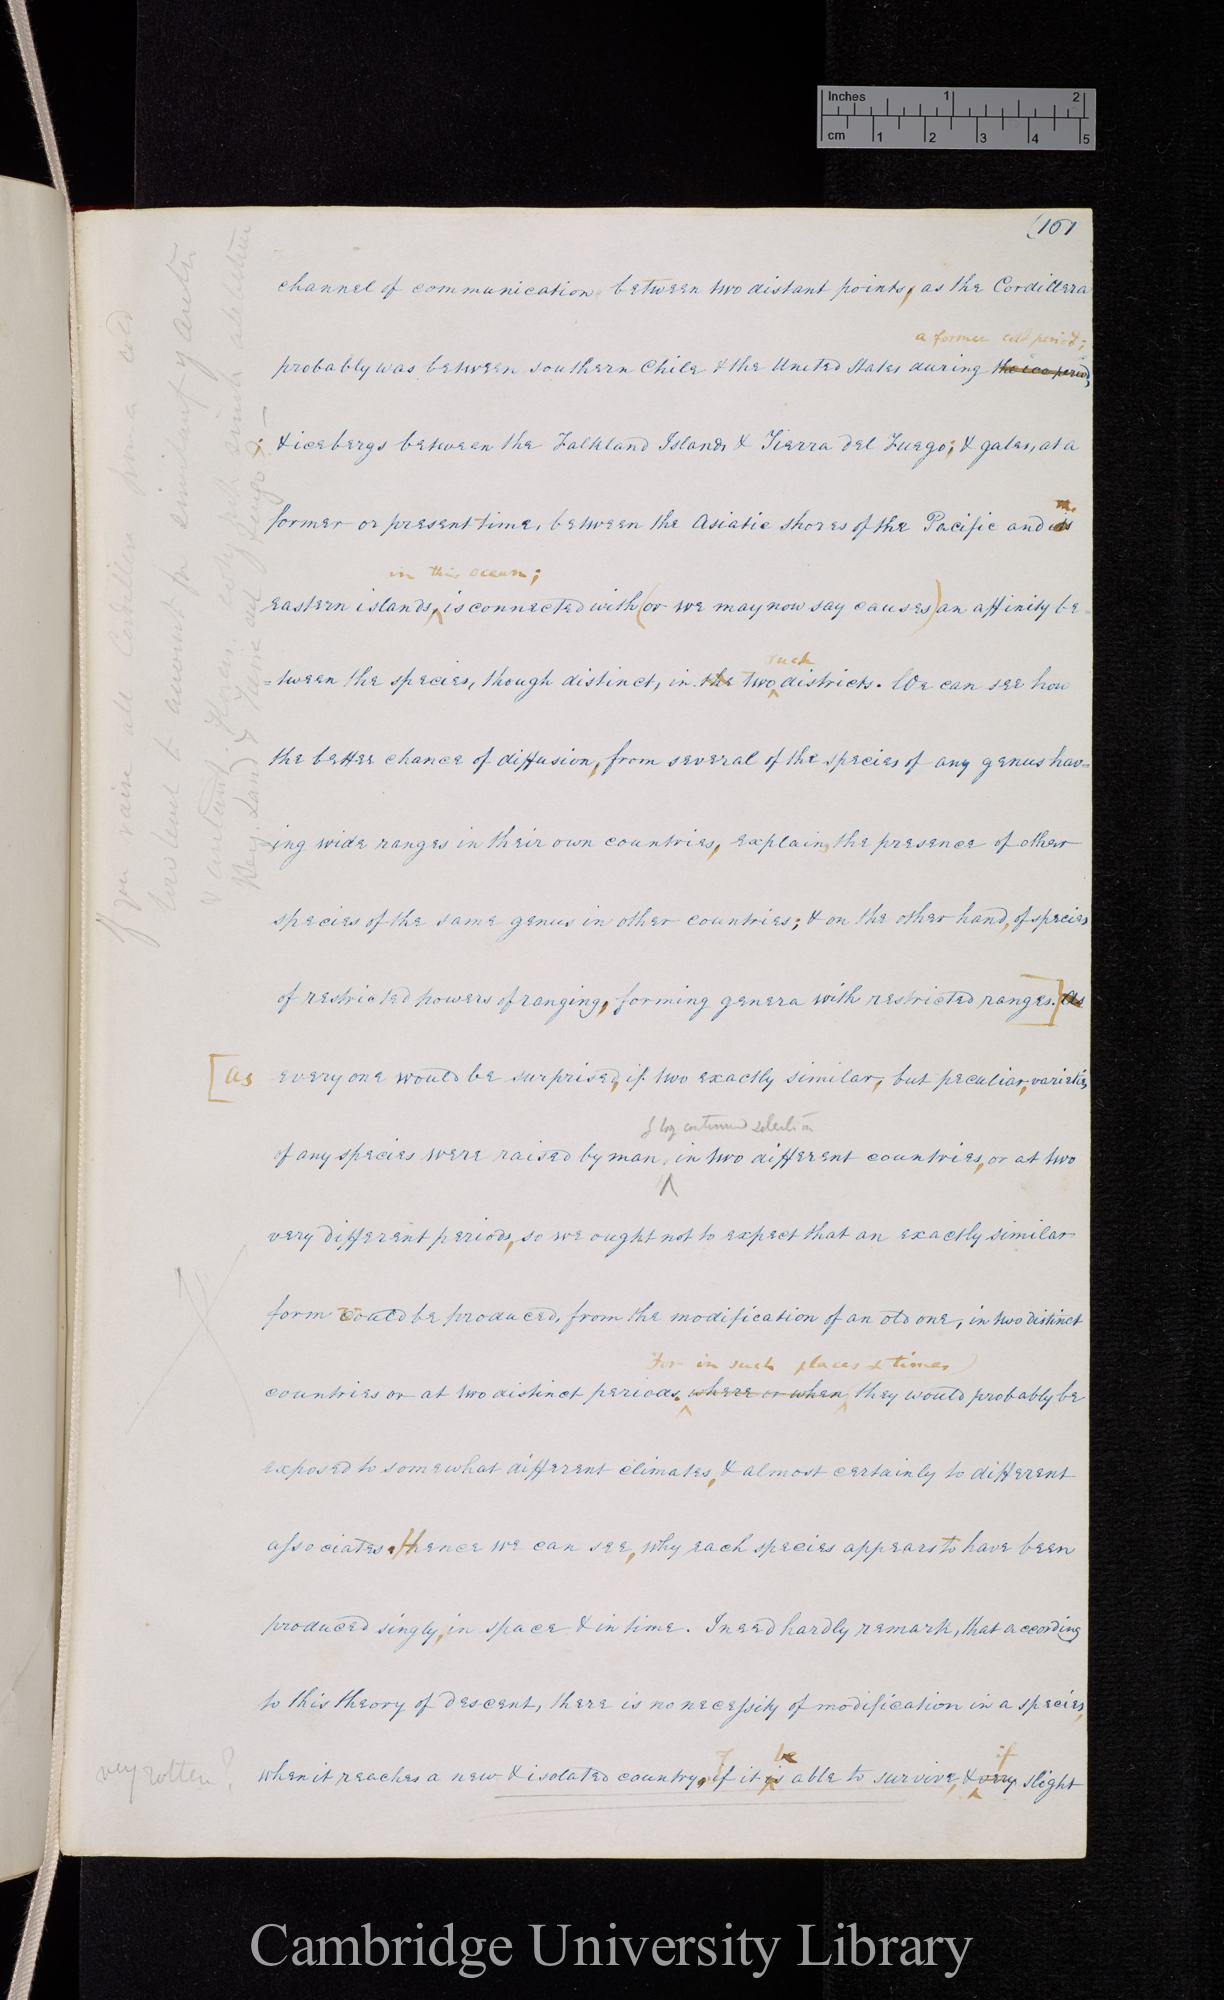 Inches 1 2
cm 1 2 3 4 5
(161
channel of communication between two distant points, as the Cordillera
a former cold period;
probably was between southern Chile & the United States during the ice period,
; & icebergs between the Falkland Islands & Tierra del Fuego; & gales, at a
former or present time, between the Asiatic shores of the Pacific and its
in this ocean;
eastern islands, is connected with (or we may now say causes) an affinity be-
such
=tween the species, though distinct, in the two districts. We can see how
the better chance of diffusion, from several of the species of any genus hav=
ing wide ranges in their own countries, explains the presence of other
species of the same genus in other countries; & on the other hand, of species
of restricted powers of ranging, forming genera with restricted ranges.] As
[As every one would be surprised, if two exactly similar, but peculiar, varieties
by continued selection
of any species were raised by man, in two different countries, or at two
very different periods, so we ought not to expect that an exactly similar
form would be produced, from the modification of an old one, in two distinct
For in such places & times)
countries or at two distinct periods. where or when, they would probably be
exposed to somewhat different climates, & almost certainly to different
associates. Hence we can see, why each species appears to have been
produced singly, in space & in time. I need hardly remark, that according
to this theory of descent, there is no necessity of modification in a species,
be if
when it reaches a new & isolated country, if it is able to survive, & very slight
very rotten?
If you raise all Cordillera from a cold
low level to account for similarity arctic
& antarctic
Kerg. Land & Tierra del Fuego —
Cambridge University Library